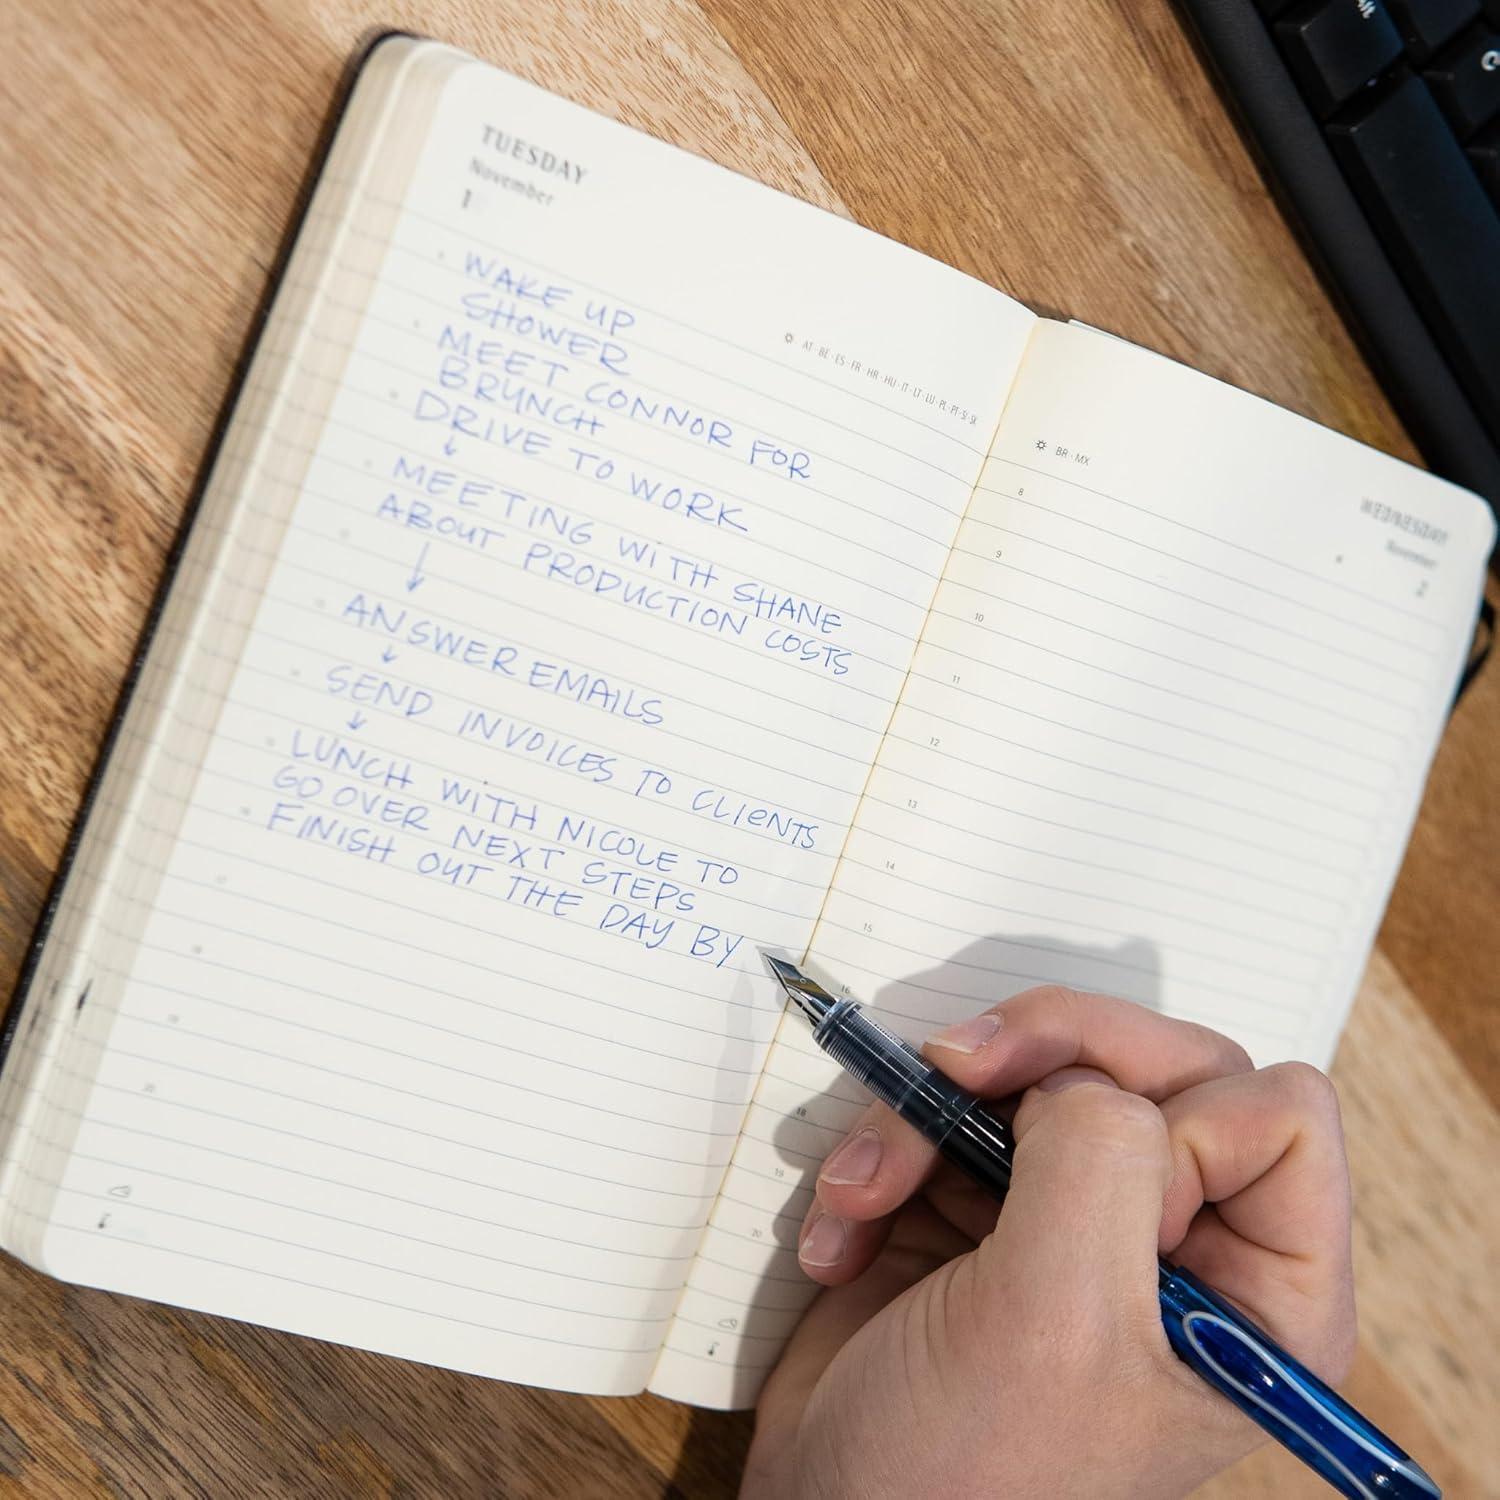 TUESDAY
November
1
AT · BE · ES · FR · HR · HU · IT · LT · LU · PL · PT · SI · SK
WAKE UP
SHOWER
MEET CONNOR FOR
BRUNCH
DRIVE TO WORK
MEETING WITH SHANE
ABOUT PRODUCTION COSTS
ANSWER EMAILS
SEND INVOICES TO CLIENTS
LUNCH WITH NICOLE TO
GO OVER NEXT STEPS
FINISH OUT THE DAY BY
18
20
WEDNESDAY
November
2
BR · MX
8
9
10
11
12
13
14
15
16
18
19
20